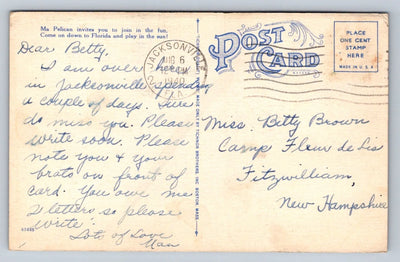 Ma Pelican invites you to join in the fun.
Come on down to Florida and play in the sun!
Dear Betty,
I am over
in Jacksonville spending
a couple of days. Sure
do miss you. Please
write soon. Please
note you & your
brats on front of
card. You owe me
2 letters so please
write.
Lots of Love
Nan
JACKSONVILLE
AUG 6
1940
FLA.
POST CARD
PLACE
ONE CENT
STAMP
HERE
MADE IN U.S.A.
Miss. Betty Brown
Camp Fleur de Lis
Fitzwilliam,
New Hampshire
MADE ONLY BY TICHNOR BROTHERS, INC. BOSTON, MASS.